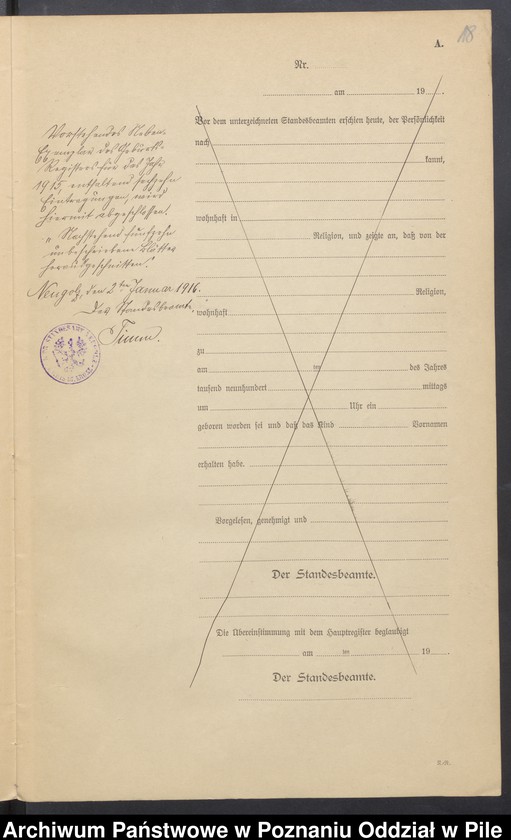 18
A.
Nr.
am 19
Vorstehendes Neben-
Exemplar des Geburts-
Registers für das Jahr
1915, enthaltend sechzehn
Eintragungen, wird
hiermit abgeschlossen.
"Nachstehend fünfzehn
unbeschriebene Blätter
herausgeschnitten."
Neugolz, den 2ten Januar 1916.
Der Standesbeamte.
Timm.
Vor dem unterzeichneten Standesbeamten erschien heute, der Persönlichkeit
nach
kannt,
wohnhaft in
Religion, und zeigte an, daß von der
Religion,
wohnhaft
zu
am ten des Jahres
tausend neunhundert mittags
um Uhr ein
geboren worden sei und daß das Kind Vornamen
erhalten habe.
Vorgelesen, genehmigt und
Der Standesbeamte.
Die Übereinstimmung mit dem Hauptregister beglaubigt
am ten 19
Der Standesbeamte.
Archiwum Państwowe w Poznaniu Oddział w Pile